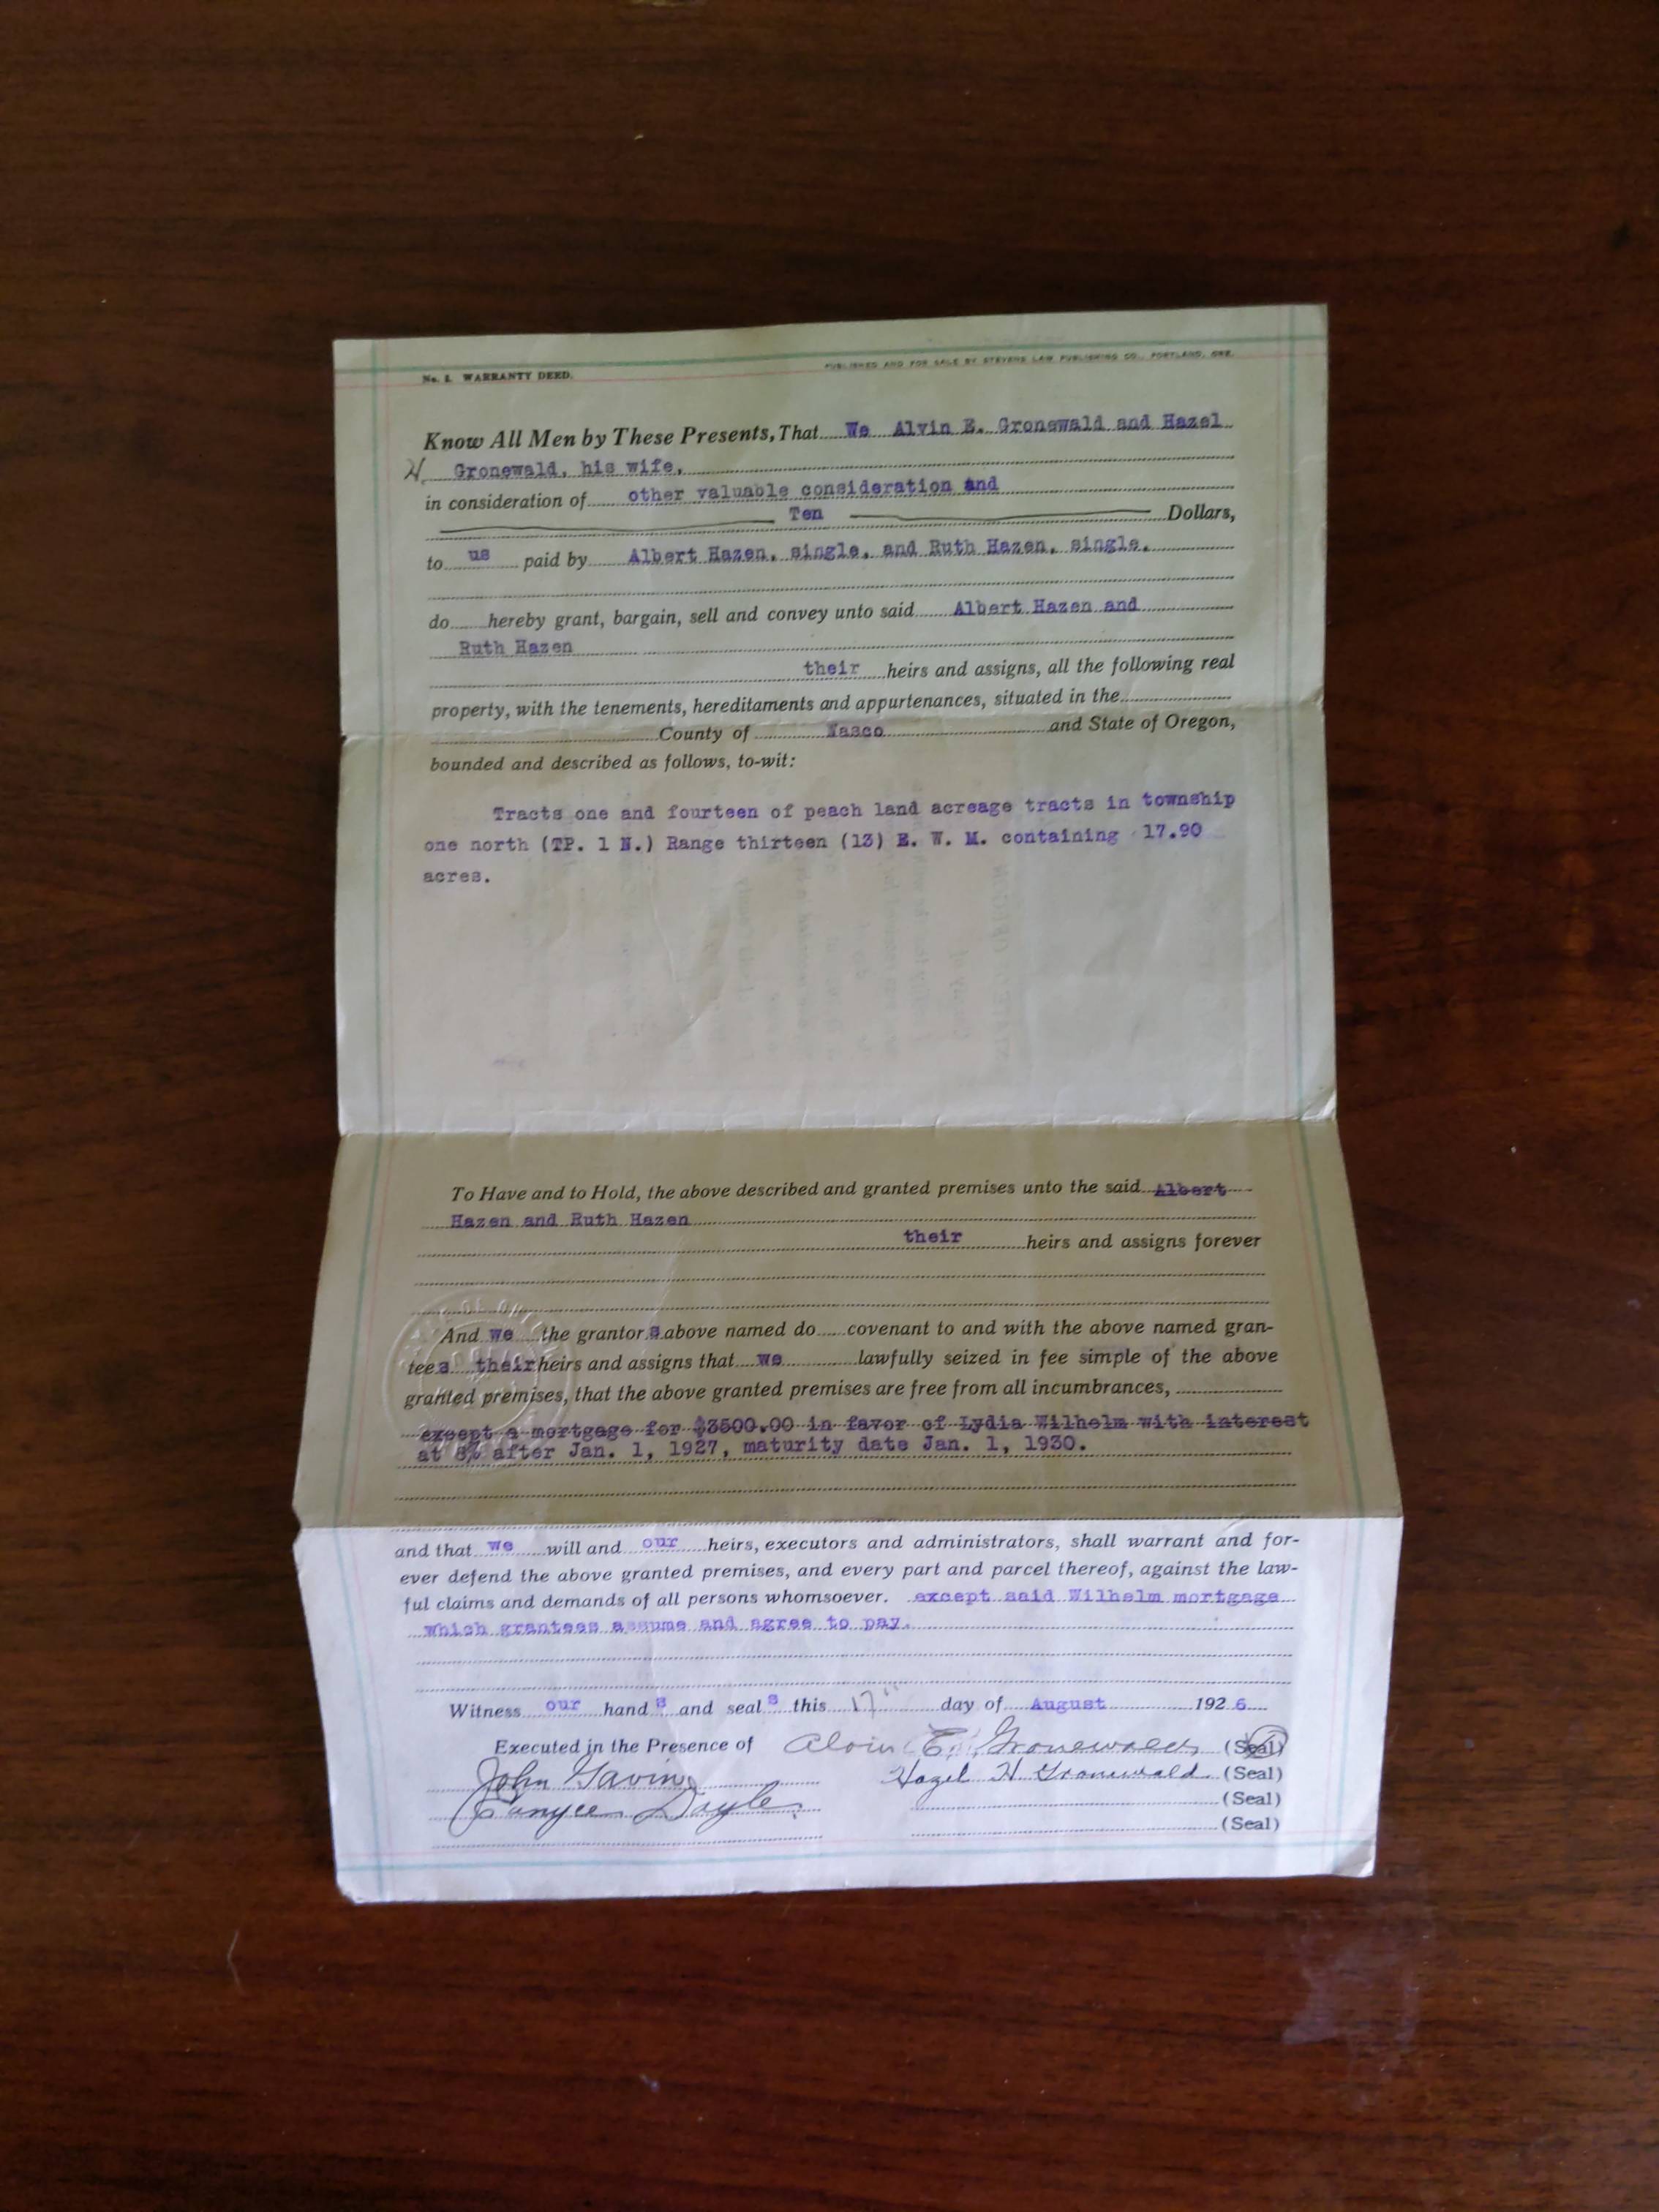 No. 1. WARRANTY DEED.
PUBLISHED AND FOR SALE BY STEVENS LAW PUBLISHING CO., PORTLAND, ORE.
Know All Men by These Presents, That We Alvin E. Gronewald and Hazel
H. Gronewald, his wife,
in consideration of other valuable consideration and
Ten Dollars,
to us paid by Albert Hazen, single, and Ruth Hazen, single,
do hereby grant, bargain, sell and convey unto said Albert Hazen and
Ruth Hazen
their heirs and assigns, all the following real
property, with the tenements, hereditaments and appurtenances, situated in the
County of Wasco and State of Oregon,
bounded and described as follows, to-wit:
Tracts one and fourteen of peach land acreage tracts in township
one north (TP. 1 N.) Range thirteen (13) E. W. M. containing 17.90
acres.
To Have and to Hold, the above described and granted premises unto the said Albert
Hazen and Ruth Hazen
their heirs and assigns forever
And we the grantors above named do covenant to and with the above named gran-
tees their heirs and assigns that we lawfully seized in fee simple of the above
granted premises, that the above granted premises are free from all incumbrances,
except a mortgage for $3500.00 in favor of Lydia Wilhelm with interest
at 8% after Jan. 1, 1927, maturity date Jan. 1, 1930.
and that we will and our heirs, executors and administrators, shall warrant and for-
ever defend the above granted premises, and every part and parcel thereof, against the law-
ful claims and demands of all persons whomsoever. except said Wilhelm mortgage
which grantees assume and agree to pay.
Witness our hands and seals this 17" day of August 1926
Executed in the Presence of Alvin E. Gronewald (Seal)
John Gavin Hazel H Gronewald (Seal)
Doyle (Seal)
(Seal)